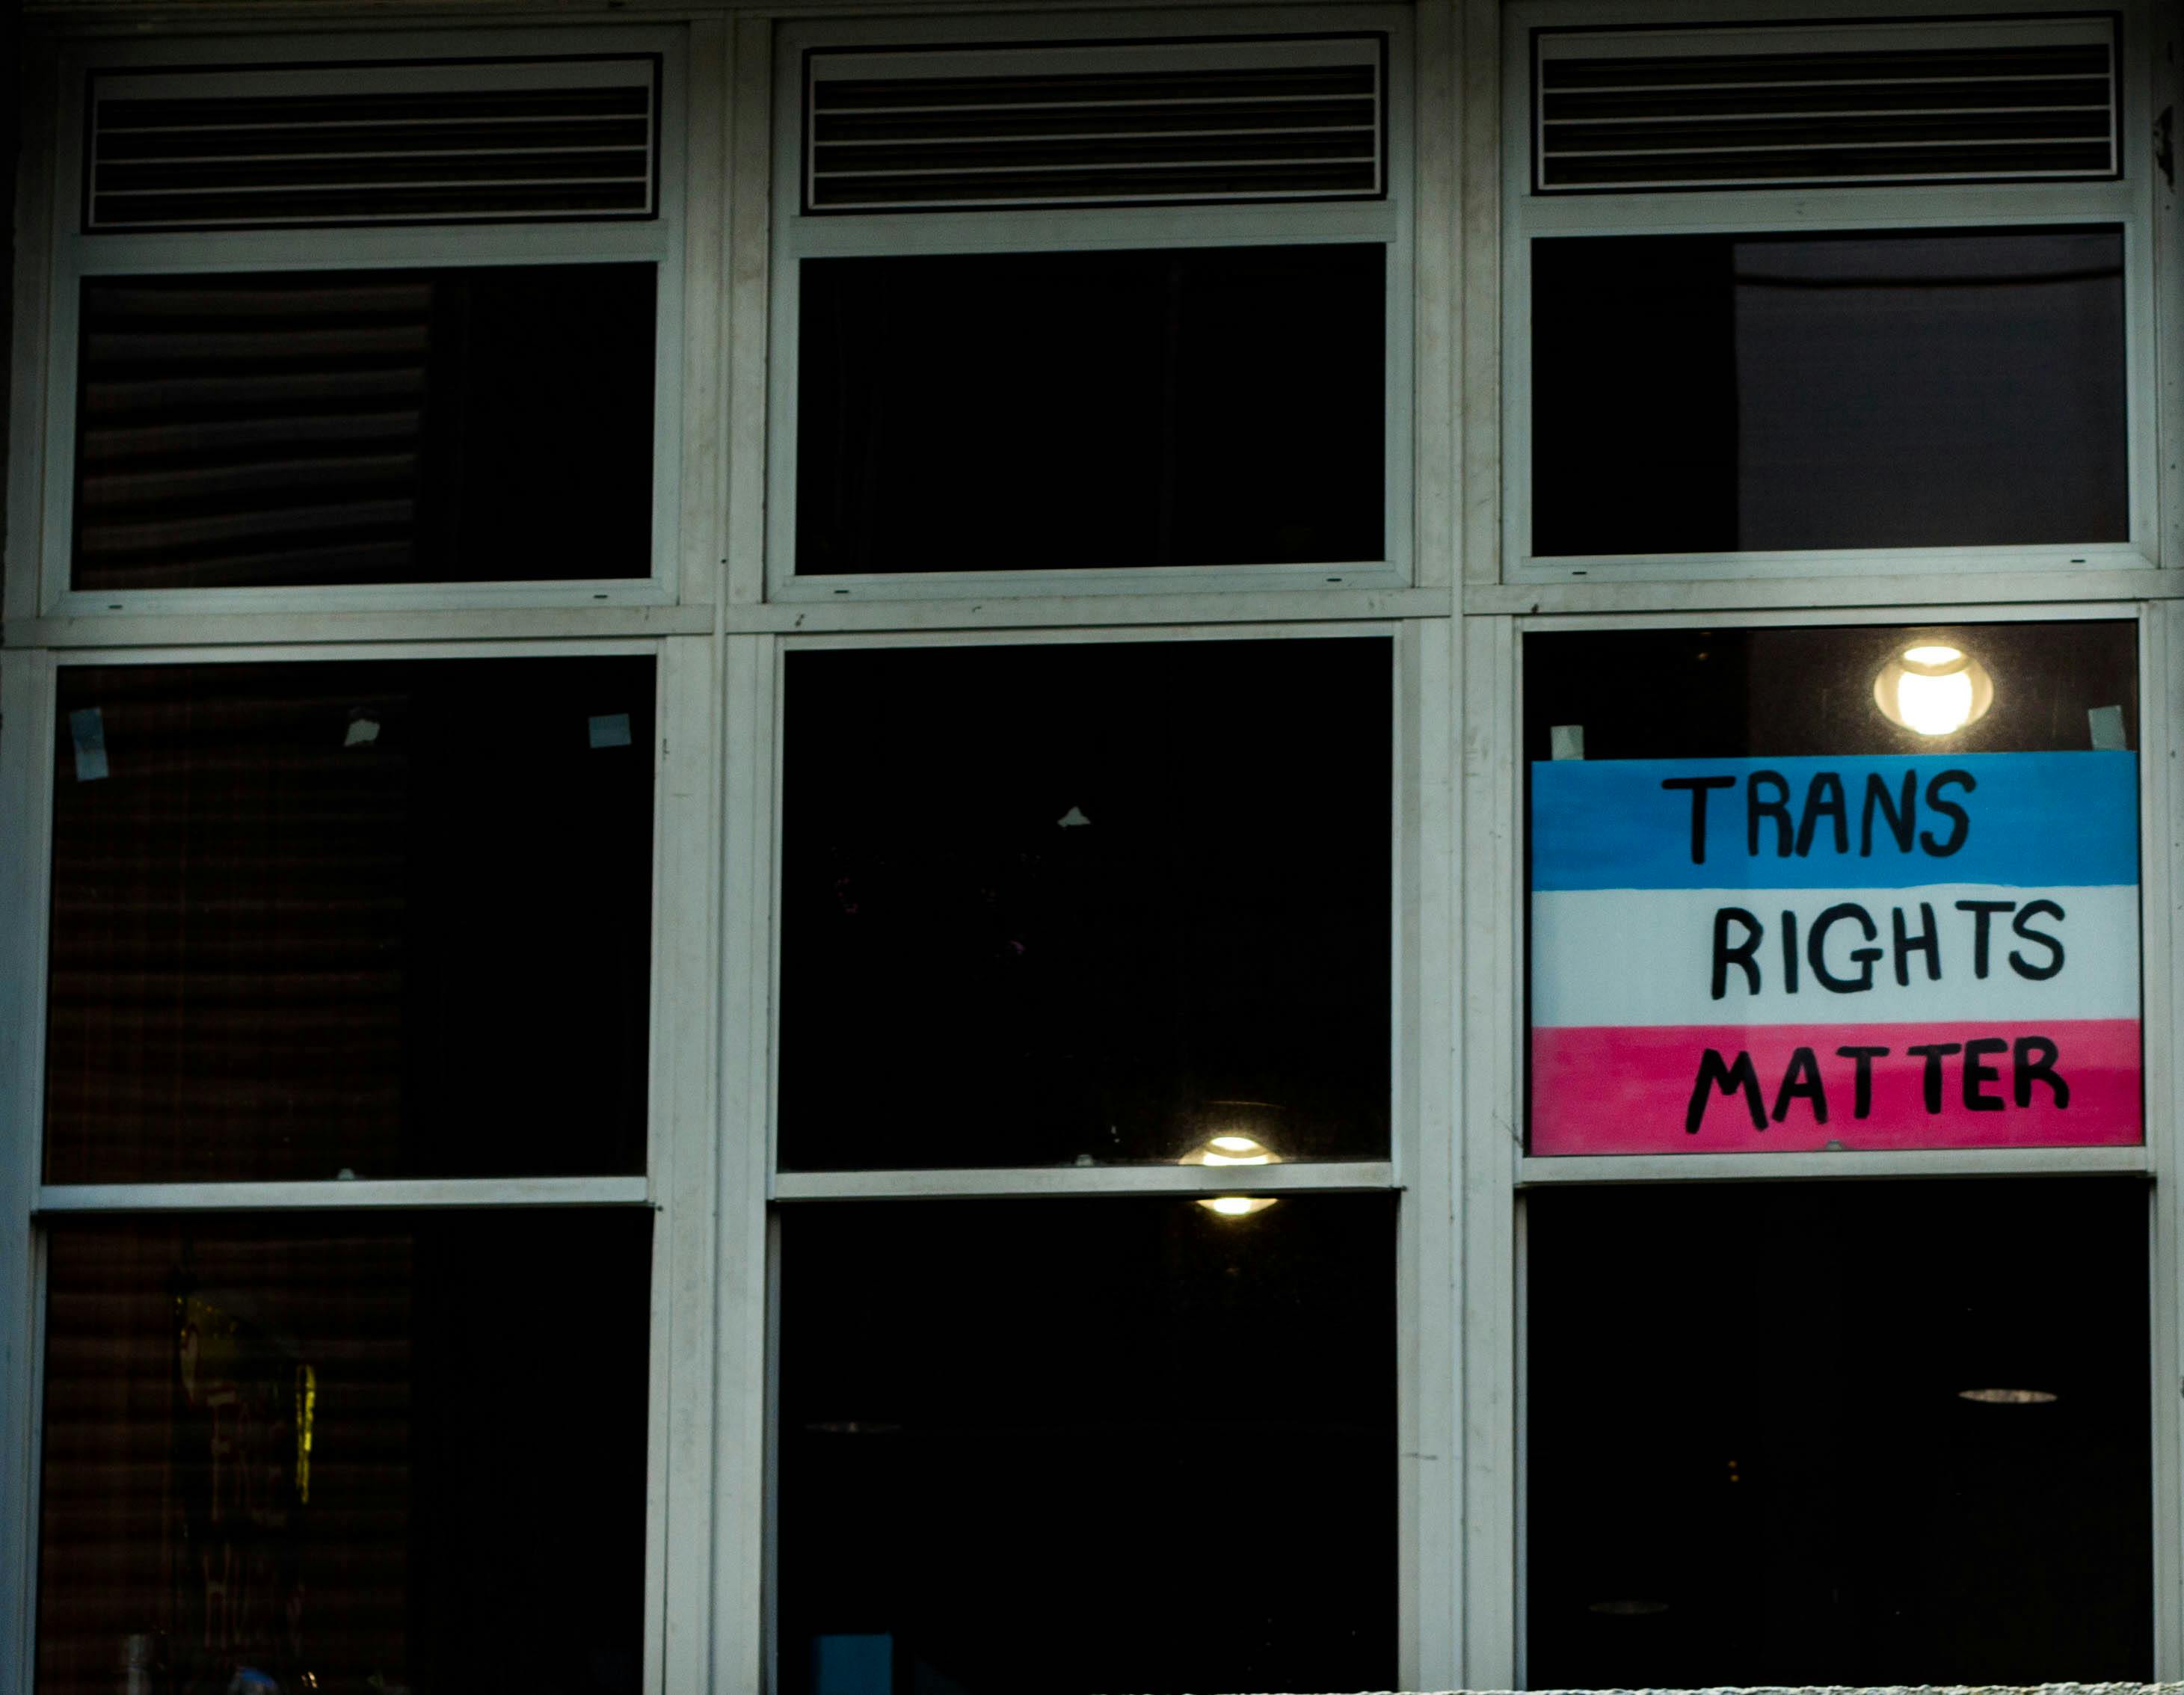 TRANS
RIGHTS
MATTER